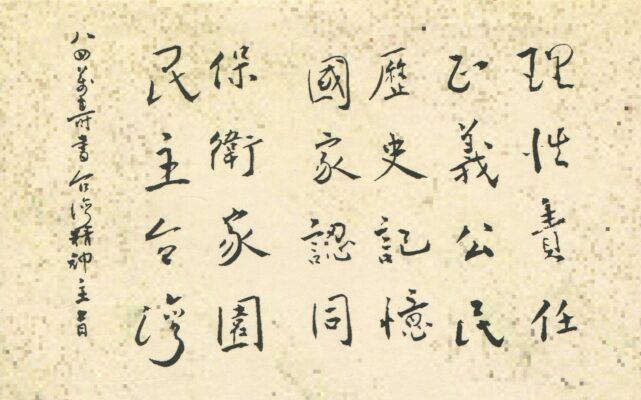 理性責任
正義公民
歷史記憶
國家認同
保衛家園
民主台灣
八四萬壽書台灣精神主旨